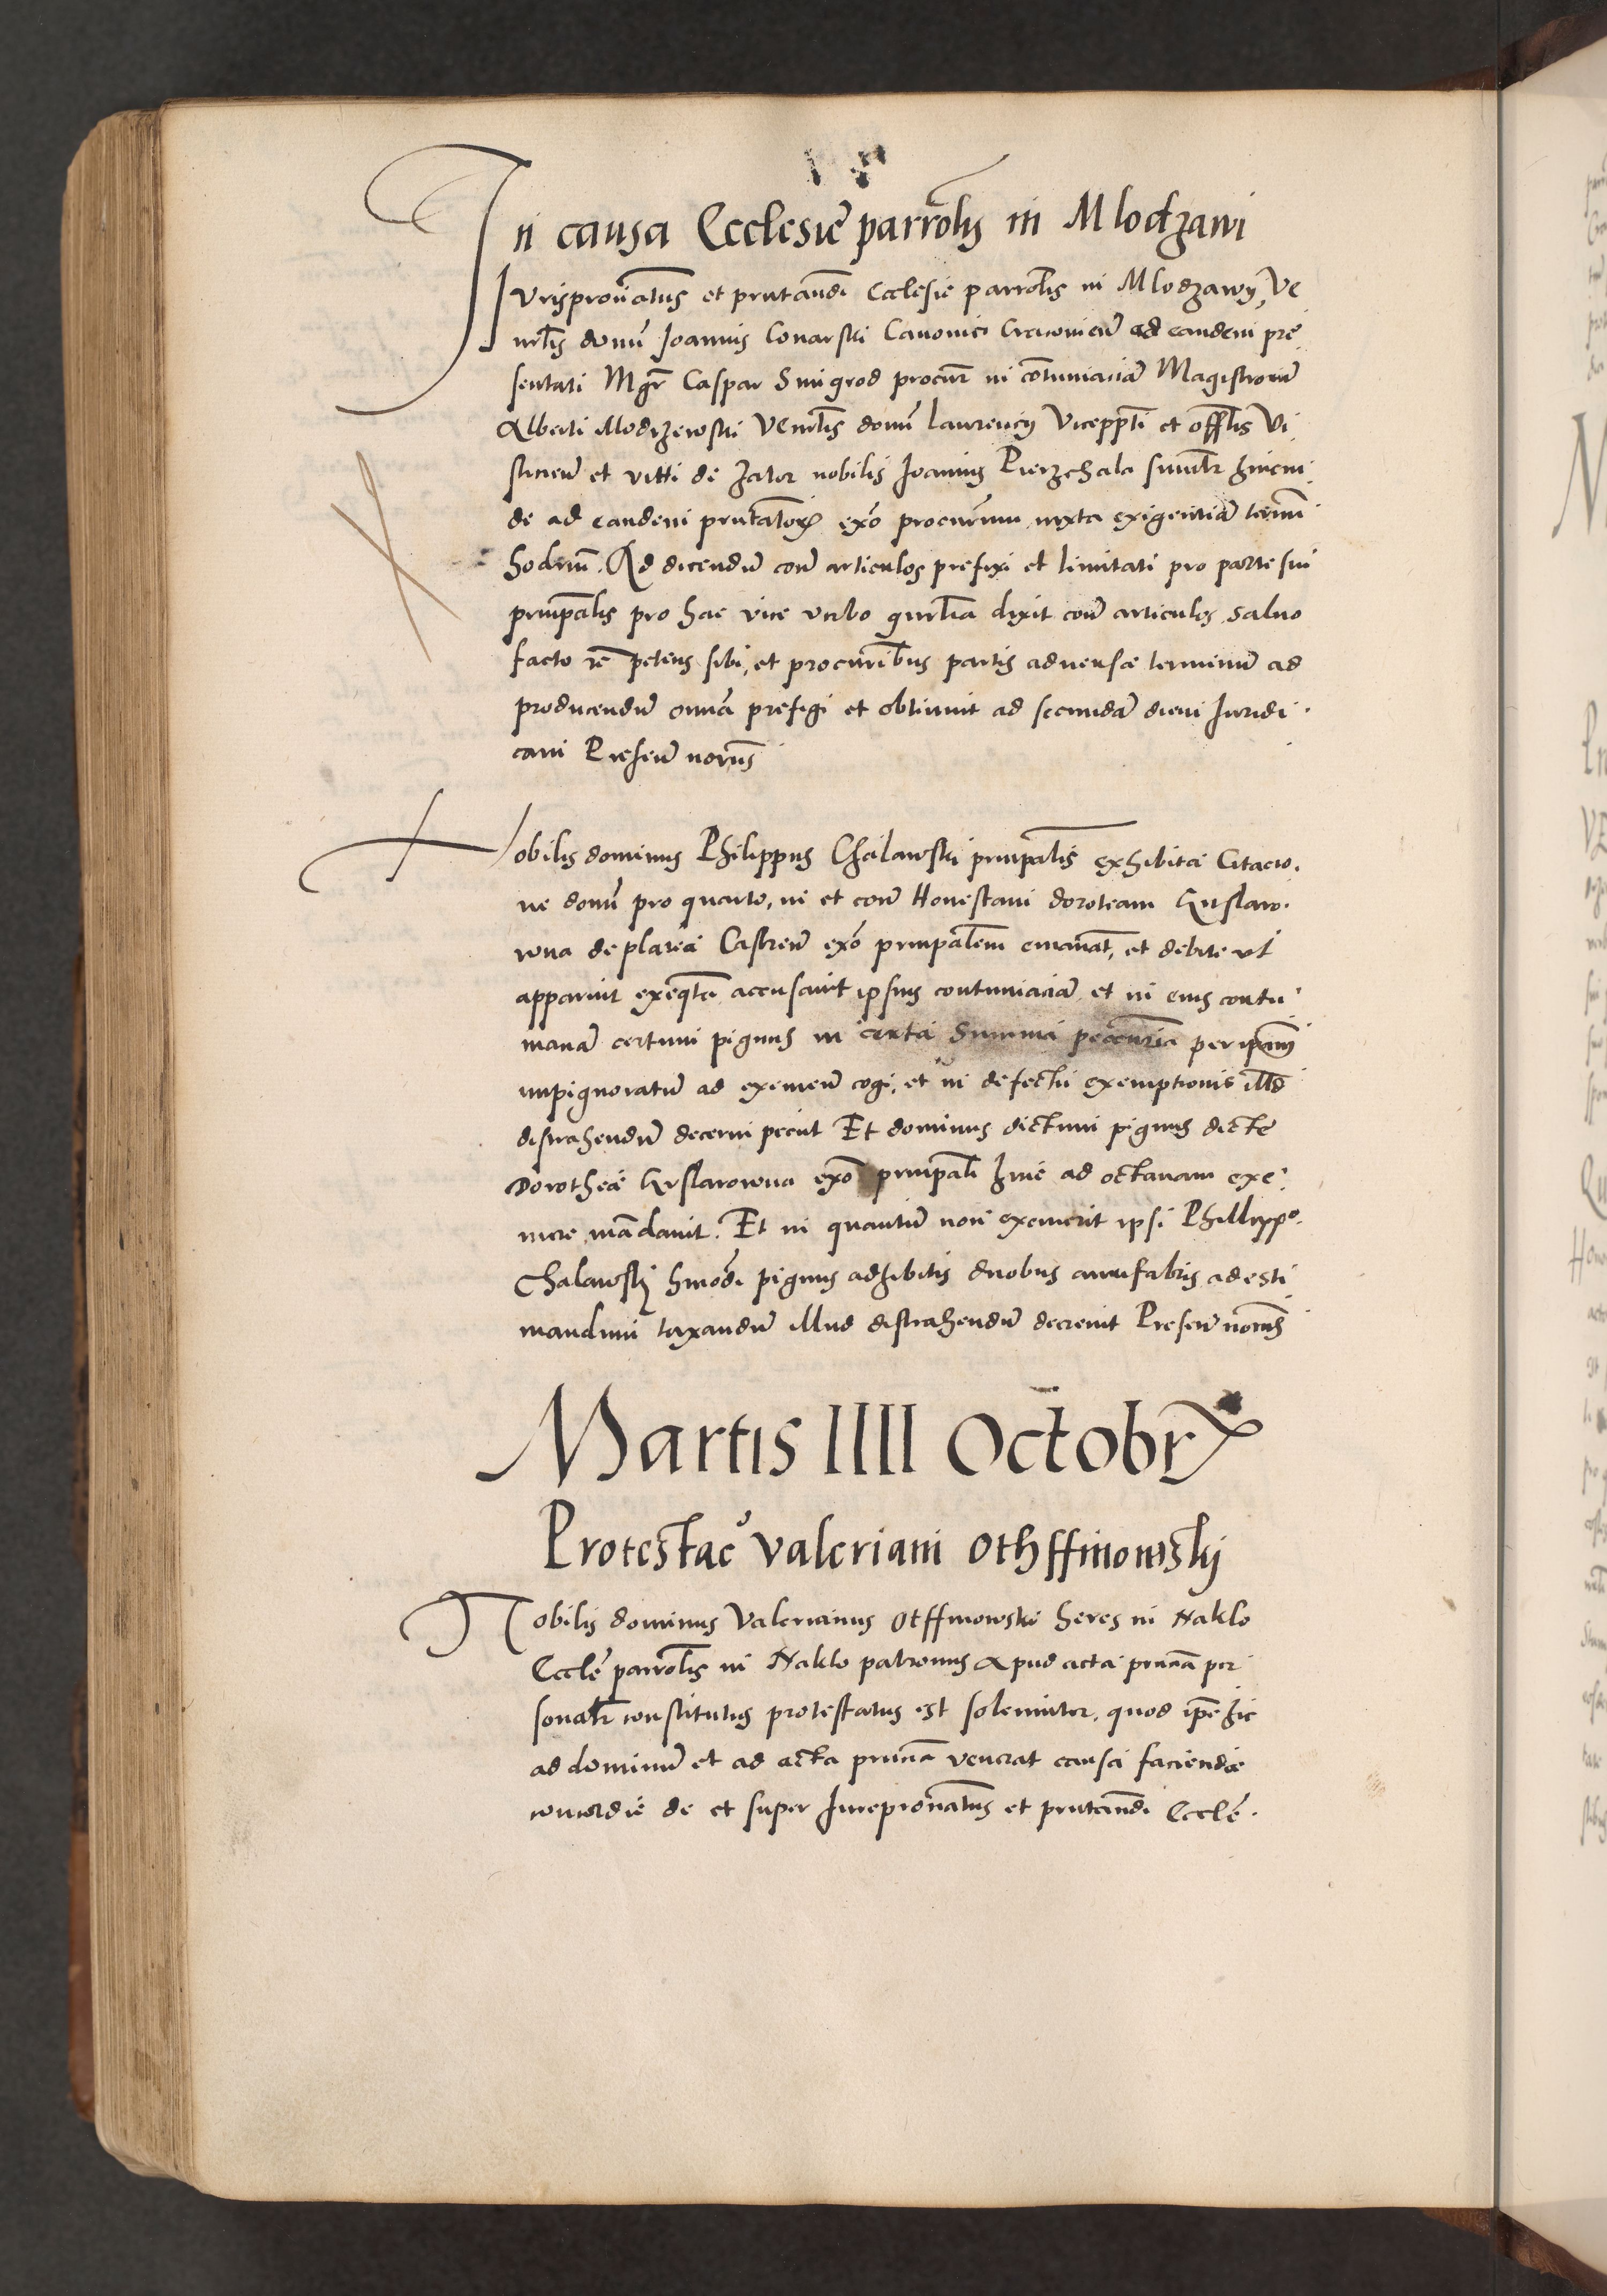 In causa Ecclesie parrolis in Mlodzawi
Jurispronatus et pntandi Ecclesie parrolis in Mlodzawy, Ve
nrlis domi Joannis Conarski Canonici Cracovien ad eandem pre
sentati Mgr Caspar Smigrod procur in contumaciam Magistrorum
Alberti Modrzewski Venrlis domi Laurencij Viceppti et offlis Vi
slicien et vitti de Zator nobilis Joannis Pierzchala simltr hincin
de ad eandem pntatorum exo procurum iuxta exigentiam termi
hodini. Ad dicendum con articulos prefixi et limitati pro parte sui
prinpalis pro hac vice verbo gnrlia dixit con articulos, salvo
facto re petens sibi, et procuribus partis adverse terminum ad
producendum omnia prefigi et obtinuit ad secundam diem Juridi
cam Presen noriis
Nobilis dominus Philippus Chalawski prinpalis exhibita Citacio
ne domi pro quarto, in et con Honestam doroteam Krslaw
rowna de platea Castren exo prinpalem emanat, et debite ut
apparuit exeqta accusavit ipsius contumaciam et in eius contu
maciam certum pignus in certa Summa pecunria per ipsam
impignoratum ad exemen cogi, et in defectu exemptionis illd
distrahendum decerni peciit Et dominus dictum pignus dicte
Dorothee Krslawrowna exo prinpali hinc ad octavam exe
mere mandavit. Et in quantum non exemerit ipsi Phillippo
Chalawskj hmodi pignus adhibitis duobus aurifabris ad esti
mandum taxandum illud distrahendum decrevit Presen noriis
Martis IIII Octobrx
Protestac Valeriani Othffinowskj
Nobilis dominus Valerianus Otffinowski heres in Naklo
Eccle parrolis in Naklo patronus Apud acta pncia per
sonaltr constitutus protestatus est solemniter, quod ipe hic
ad dominum et ad acta pncia venerat causa faciende
concordie de et super Jurepronatus et pntandi Eccle